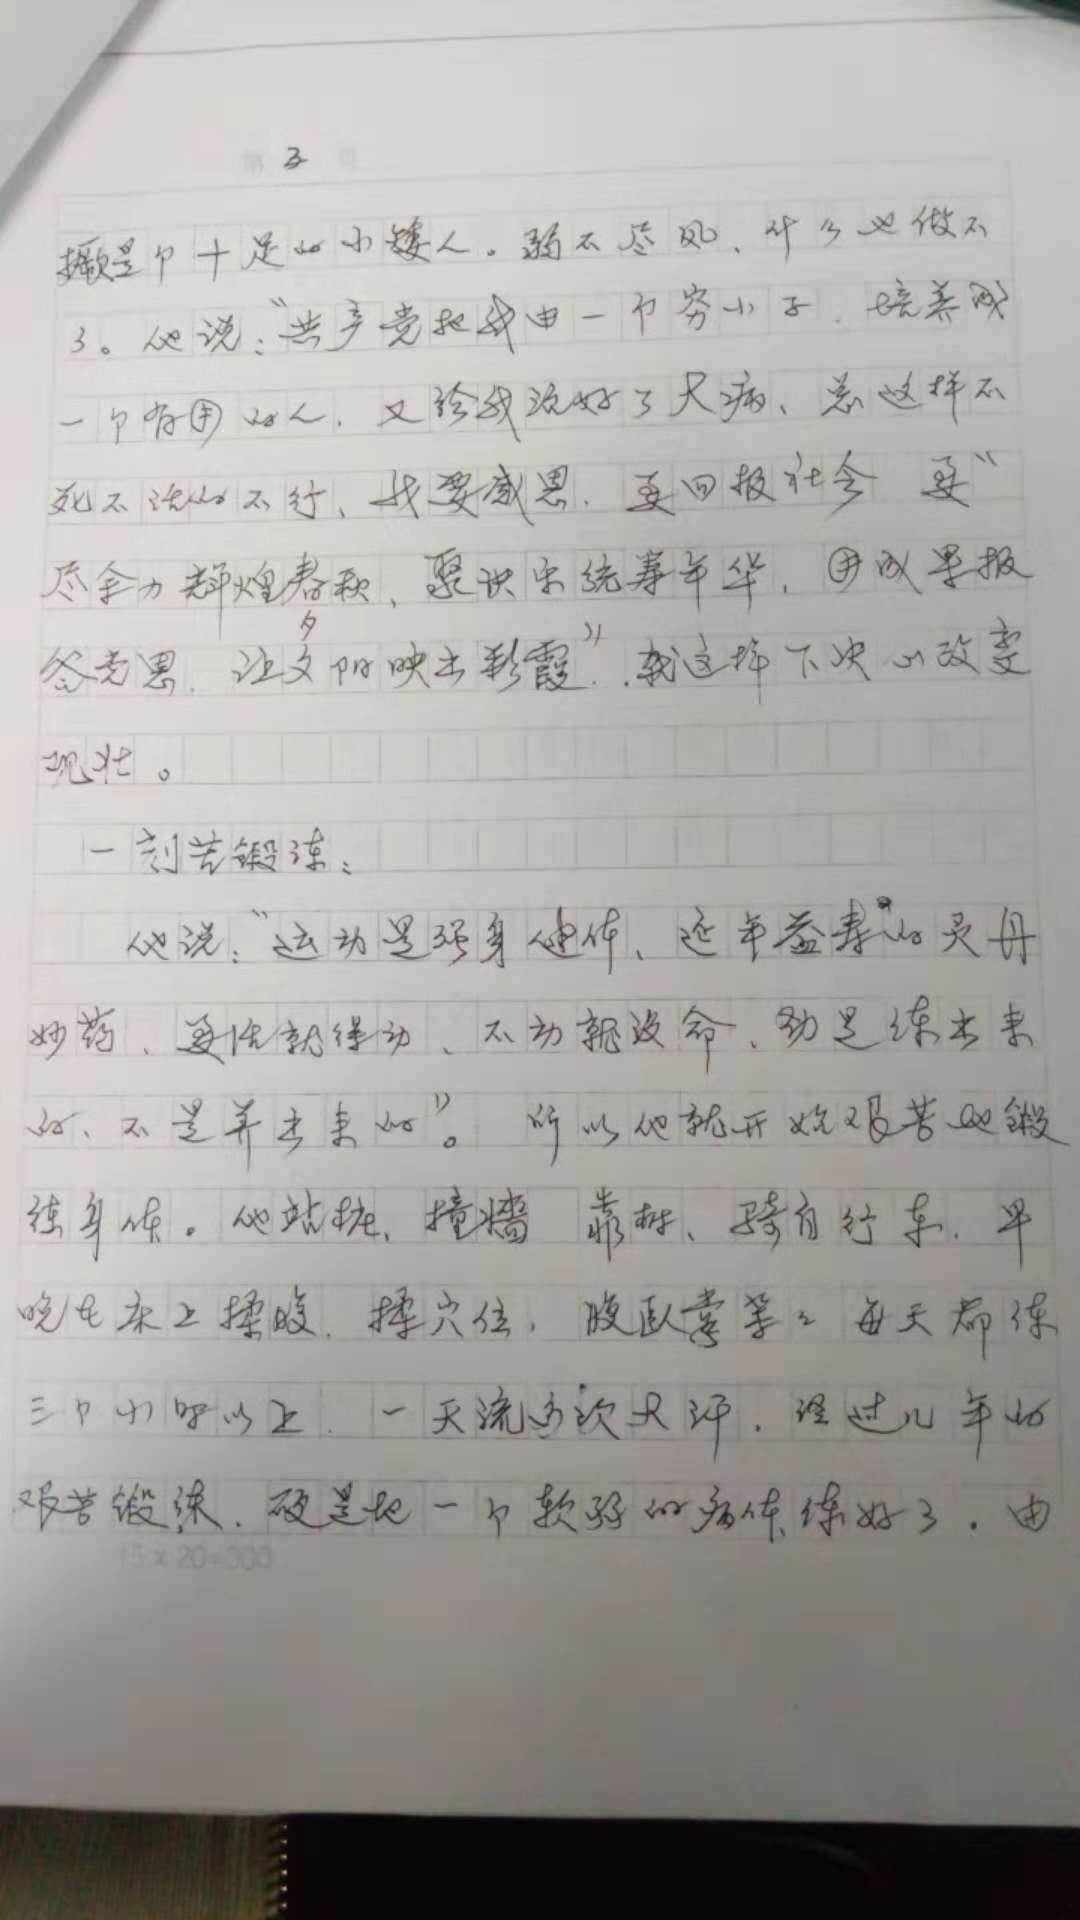 第 3 页
是个十足的小矮人。弱不尽风、什么也做不
了。他说:“共产党把我由一个穷小子、培养成
一个有用的人、又给我治好了大病、总这样不
死不活的不行、我要感恩、要回报社会 要“
尽全力辉煌春秋、聚 年华、用成果报
答党恩、让夕阳映出彩霞”、就这样下决心改变
现壮。
一刻苦锻练:
他说:“运动是强身健体、延年益寿的灵丹
妙药、要活就得动、不动就没命、劲是练出来
的、不是养出来的”。所以他就开始艰苦地锻
练身体。他站桩、撞墙 靠树、骑自行车、早
晚在床上揉腹、揉穴位、腹卧掌等 每天都练
三个小时以上、一天流 次大汗。经过几年的
艰苦锻练、硬是把一个软弱的病体练好了。由
15×20=300